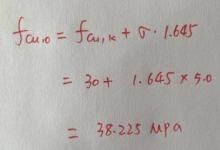 fcu,o = fcu,k + σ · 1.645
= 30 + 1.645 × 5.0
= 38.225 MPa